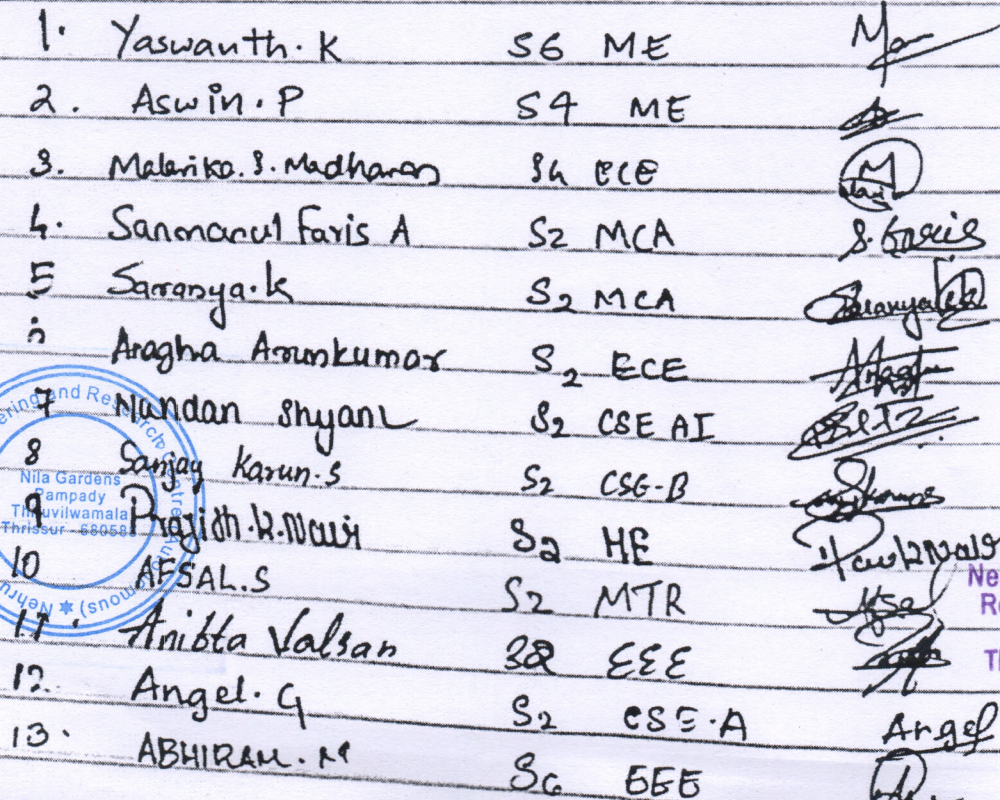 1. Yaswanth. K S6 ME
2. Aswin. P S4 ME
3. Malavika. S. Madhavan S4 ECE M
4. Sanmanul Faris A S2 MCA S. Faris
5 Saranya.k S2 MCA Saranya
Aragha Arunkumar S2 ECE
7 Nandan Shyam S2 CSE AI
8 Sanjay Karun.S S2 CSE-B
9 Prajith.k.Nair S2 ME
10 AFSAL.S S2 MTR
11. Anibta Valsan S2 EEE
12. Angel. G S2 CSE.A Angel
13. ABHIRAM. M S6 EEE
ering and Research Centre (Autonomous) Nehru
Nila Gardens
Pampady
Thiruvilwamala
Thrissur - 680588
Ne
Re
Th